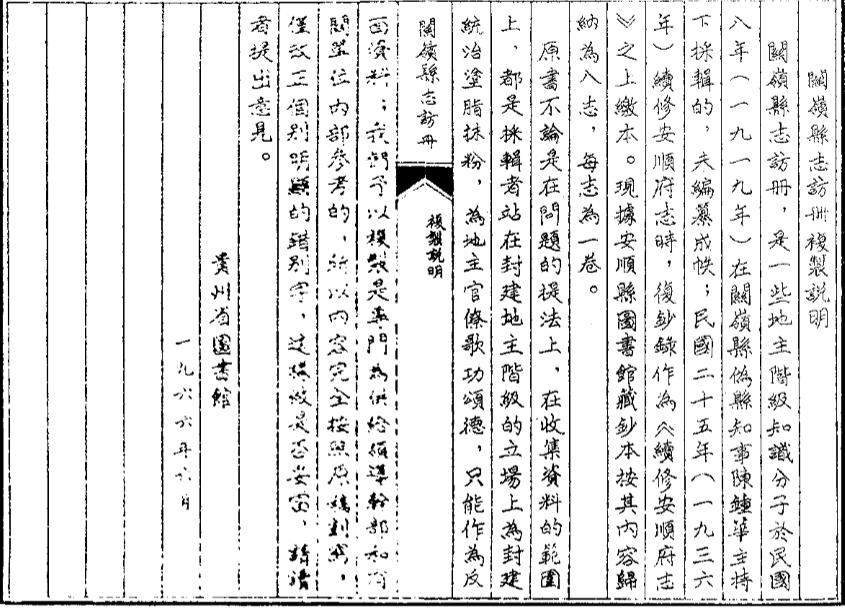 關嶺縣志訪册複製説明
關嶺縣志訪册，是一些地主階級知識分子於民國
八年（一九一九年）在關嶺縣偽縣知事陳鍾華主持
下採輯的，未編纂成帙；民國二十五年（一九三六
年）續修安順府志時，復鈔録作為《續修安順府志
》之上繳本。現據安順縣圖書館藏鈔本按其内容歸
納為八志，每志為一卷。
原書不論是在問題的提法上，在收集資料的範圍
上，都是採輯者站在封建地主階級的立場上為封建
統治塗脂抹粉，為地主官僚歌功頌德，只能作為反
關嶺縣志訪册
複製説明
面資料；我們予以複製是專門為供給領導幹部和有
關單位内部參考的，所以内容完全按照原稿刻寫，
僅改正個别明顯的錯别字，這樣做是否妥當，請讀
者提出意見。
貴州省圖書館
一九六六年六月